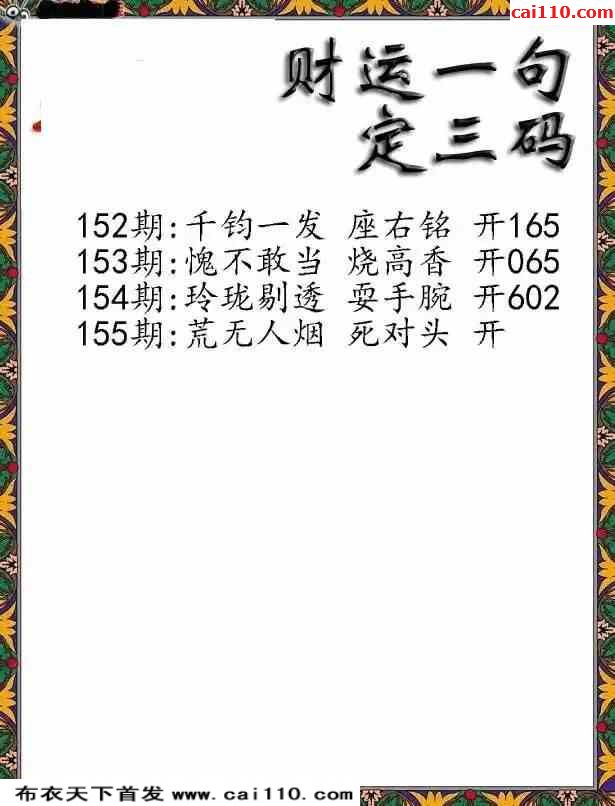 cai110.com
财运一句
定三码
152期:千钧一发 座右铭 开165
153期:愧不敢当 烧高香 开065
154期:玲珑剔透 耍手腕 开602
155期:荒无人烟 死对头 开
布衣天下首发 www.cai110.com